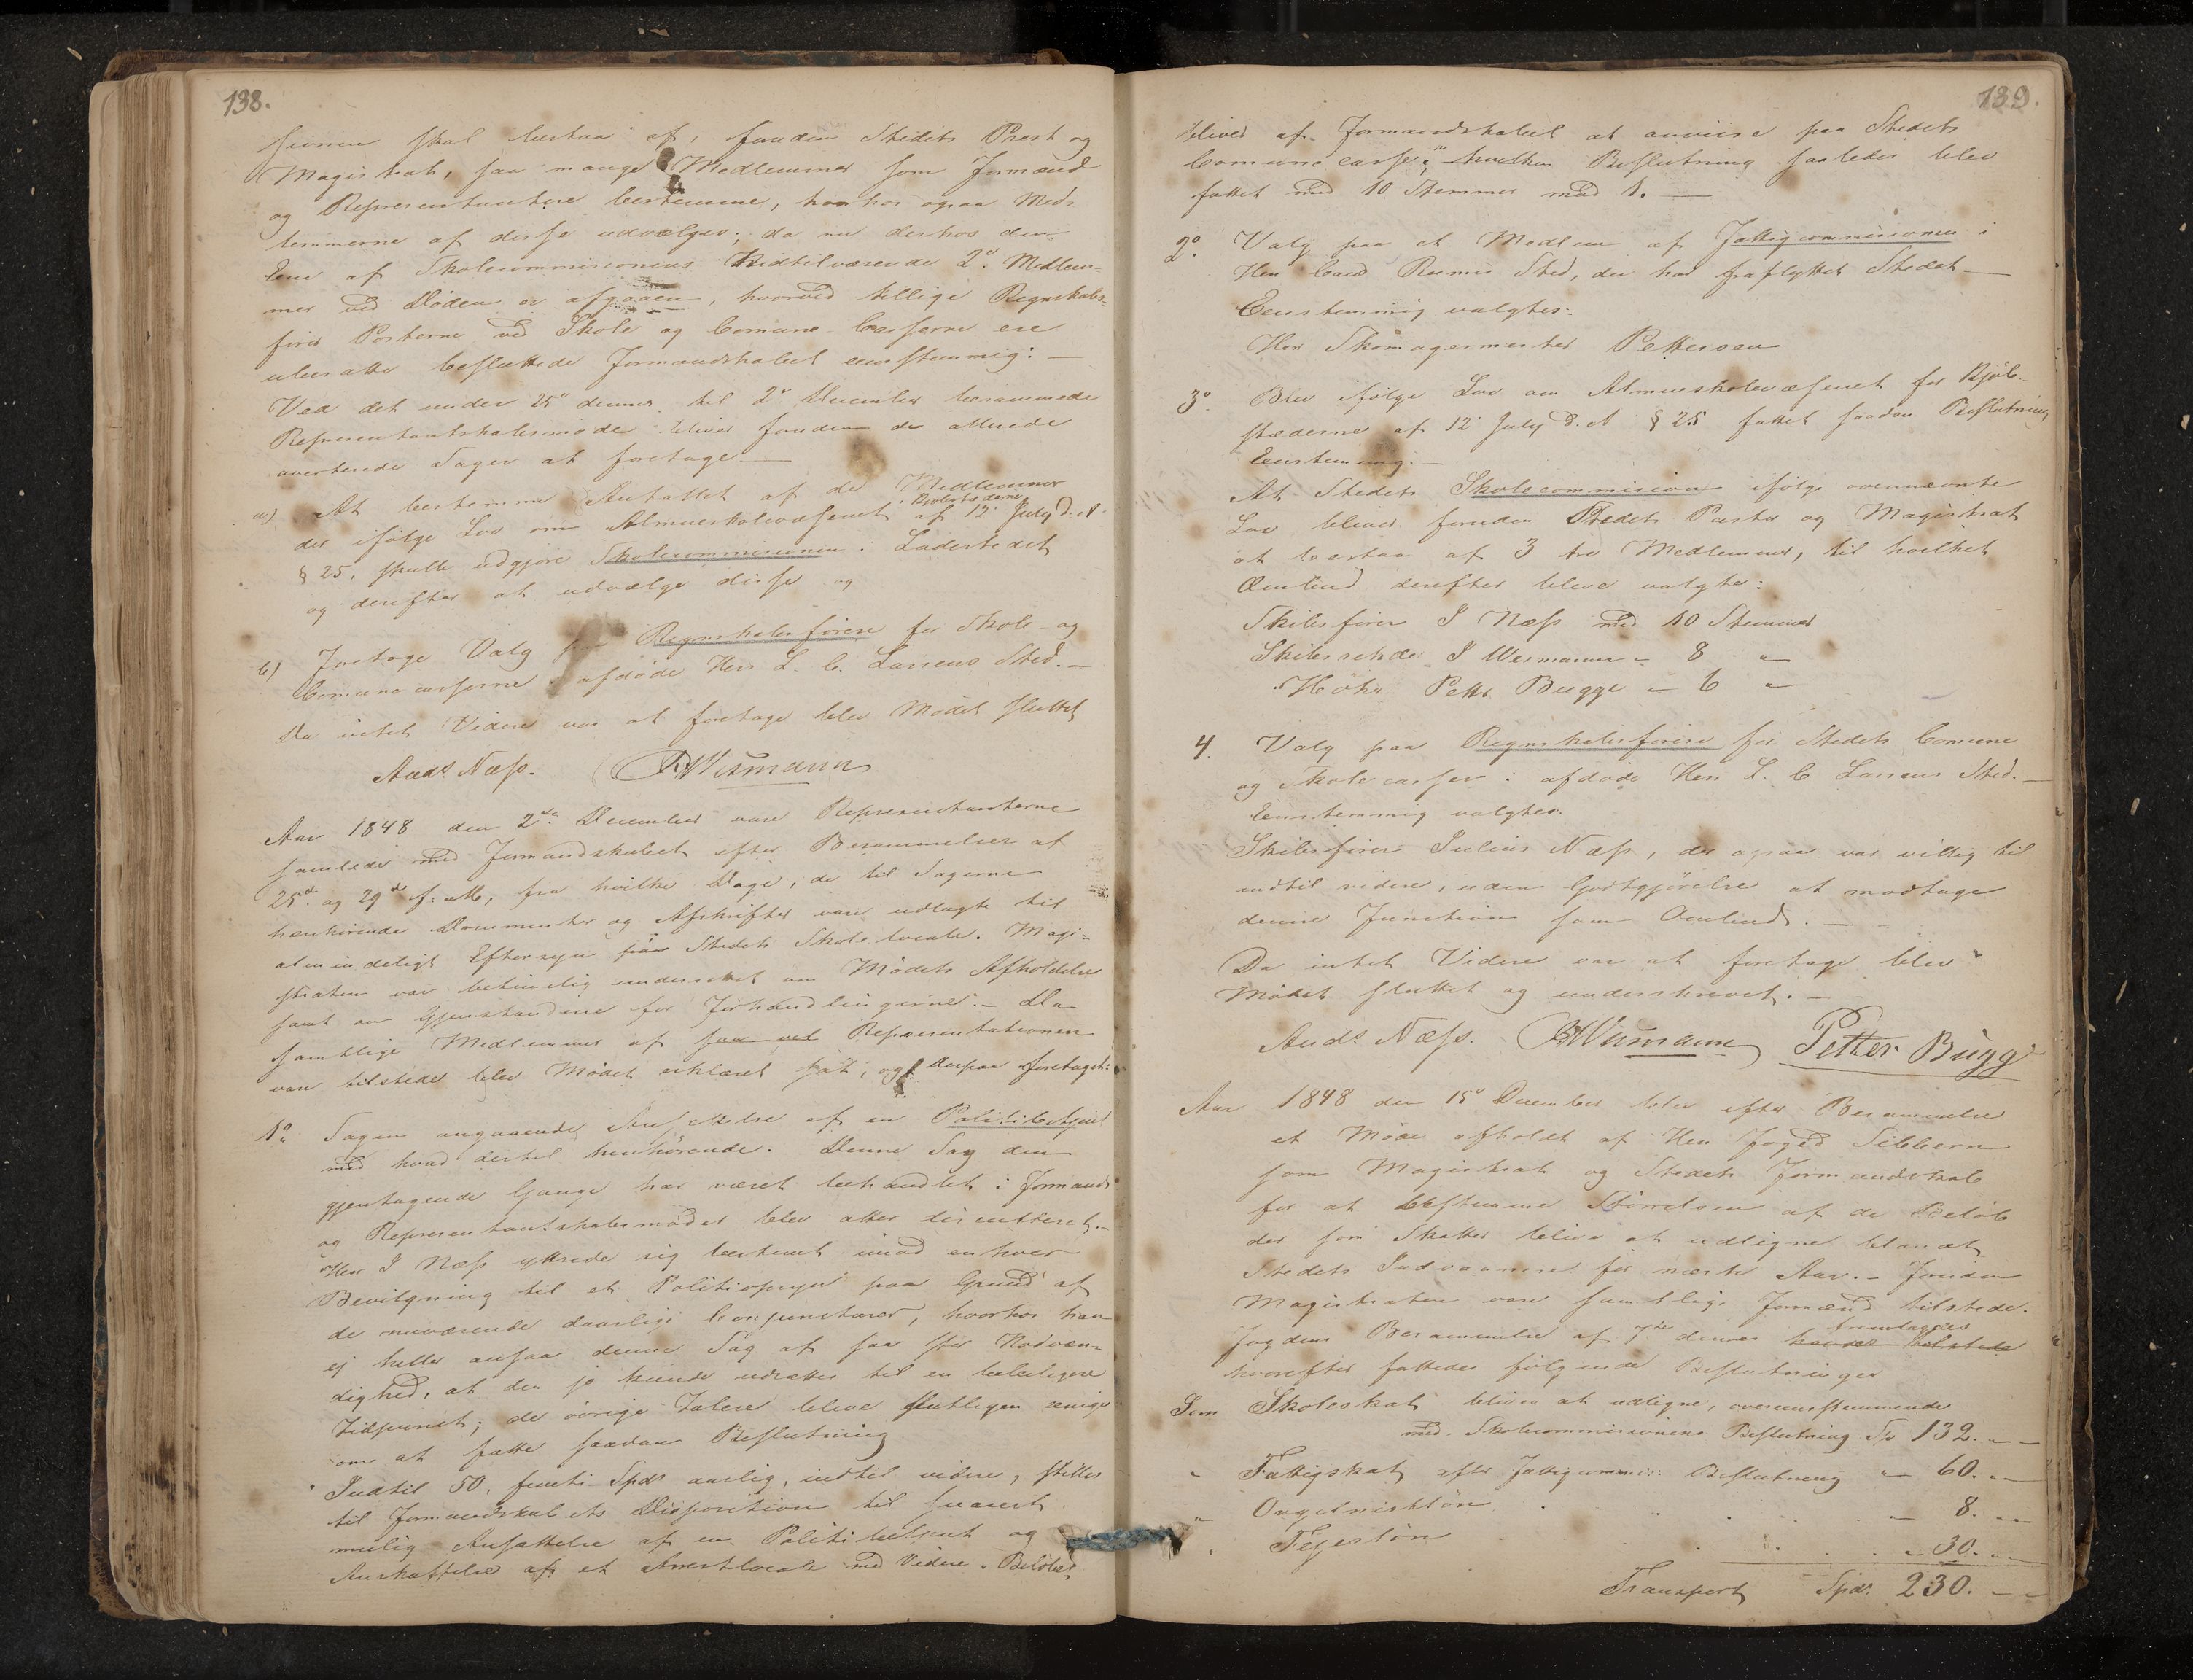 138.
sionen skal bestaa af, foruden Stedets Præst og
Magistrat, saa mange Medlemmer som Formænd
og Representantere bestemme, hvorhos ogsaa Med-
lemmerne af disse udvælges; da nu derhos den
Ene af Skolecommissionens hidtilværende 2de Medlem-
mer ved Døden er afgaaen, hvorved tillige Regnskabs-
fører Posterne ved Skole og Comune Casserne ere
ubesatte besluttede Formandskabet eenstemmig: —
Ved det under 25de dennes til 2de December berammede
Representantskabsmøde bliver foruden de allerede
averterede Sager at foretage —
a) At bestemme Antallet af de Medlemmer
der ifølge Lov om Almueskolevæsenet i Kjøbstæderne af 12te July d. A.
§ 25, skulle udgjøre Skolecommissionen i Ladestedet
og derefter at udvælge disse og
b) Foretage Valg paa Regnskabsførere for Skole- og
Comunecasserne i afdøde Herr L. C. Larsens Sted. —
Da intet Videre var at foretage blev Mødet sluttet
Ands Næss. Wismann
Aar 1848 den 2den December vare Representanterne
samlede med Formandskabet efter Berammelser af
25de og 29de f. M., fra hvilke Dage, de til Sagerne
henhørende Documenter og Afskrifter vare udlagte til
almindeligt Eftersyn paa Stedets Skolelocale. Magi-
straten var betimelig underrettet om Mødets Afholdelse
samt om Gjenstandene for Forhandlingerne. — Da
samtlige Medlemmer af saavel Representationen
vare tilstede blev Mødet erklæret sat, og derpaa foretaget:
1o Sagen angaaende Ansættelse af en Politibetjent
med hvad dertil henhørende. Denne Sag den
gjentagende Gange har været behandlet i Formands
og Representantskabsmøder blev atter discutteret. —
Herr I Næss yttrede sig bestemt imod enhver
Bevilgning til et Politiopsyn paa Grund af
de nuværende daarlige Conjuncturer, hvorhos han
ej heller ansaa denne Sag af saa stor Nødven-
dighed, at den jo kunde udsættes til en beleiligere
Tidspunct; de øvrige Talere bleve slutligen enige
om at fatte saadan Beslutning
" Indtil 50, femti Spdr aarlig, indtil videre, stilles
til Formandskabets Disposition til snarest
mulig Ansættelse af en Politibetjent og
Anskaffelse af et Arrestlocale med Videre. Beløbet
139.
bliver af Formandskabet at anviise paa Stedets
Comunecasse;" hvilken Beslutning saaledes blev
fattet med 10 Stemmer mod 1. —
2o. Valg paa et Medlem af Fattigcommissionen i
Herr Sted, der har fraflyttet Stedet —
Eenstemmig valgtes:
Herr Skomagermester Pettersen
3o. Blev ifølge Lov om Almueskolevæsenet for Kjøb-
stæderne af 12te July d. A § 25 fattet saadan Beslutning
Eenstemmig: —
At Stedets Skolecommission ifølge ovennævnte
Lov bliver foruden Stedets Pastor og Magistrat
at bestaa af 3 tre Medlemmer, til hvilket
Ombud derefter bleve valgte:
Skibsfører I Næss med 10 Stemmer
Skibsreder I Wesmann " 8 "
Petter Bugge " 6 "
4. Valg paa Regnskabsfører for Stedets Comune
og Skolecasser i afdøde Herr L. C Larsens Sted. —
Eenstemmig valgtes:
Skibsfører Julius Næss, der ogsaa var villig til
indtil videre, uden Godtgjørelse at modtage
denne Function som Ombud. —
Da intet Videre var at foretage blev
Mødet sluttet og underskrevet. —
Ands Næss. Wismann Petter Bugge
Aar 1848 den 15de December blev efter Berammelse
et Møde afholdt af Herr Foged Sibbern
som Magistrat og Stedets Formandskab
for at bestemme Størrelsen af de Beløb
der som Skatter bliver at udligne blandt
Stedets Indvaanere for næste Aar. — Foruden
Magistraten vare samtlige Formænd tilstede.
Fogdens Berammelse af 7de dennes fremlagdes
hvorefter fattedes følgende Beslutninger
Som Skoleskat bliver at udligne, overeensstemmende
med Skolecommissionens Beslutning Sp 132. " "
" Fattigskat efter Fattigcommiss: Beslutning " 60. " "
" Orgelnistløn . . . . . " 8. " "
" Fejerløn . . . . . " 30. " "
Transport Spdr 230. " "